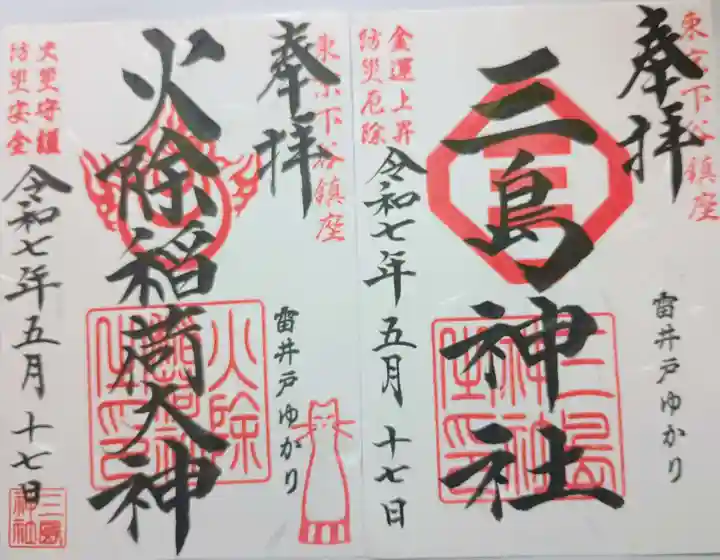 東京下谷鎮座
奉拝
三島神社
雷井戸ゆかり
金運上昇
防災厄除
令和七年五月十七日
三島
神社
東京下谷鎮座
奉拝
火除稲荷大神
火除
雷井戸ゆかり
火災守護
防災安全
令和七年五月十七日
三島
神社